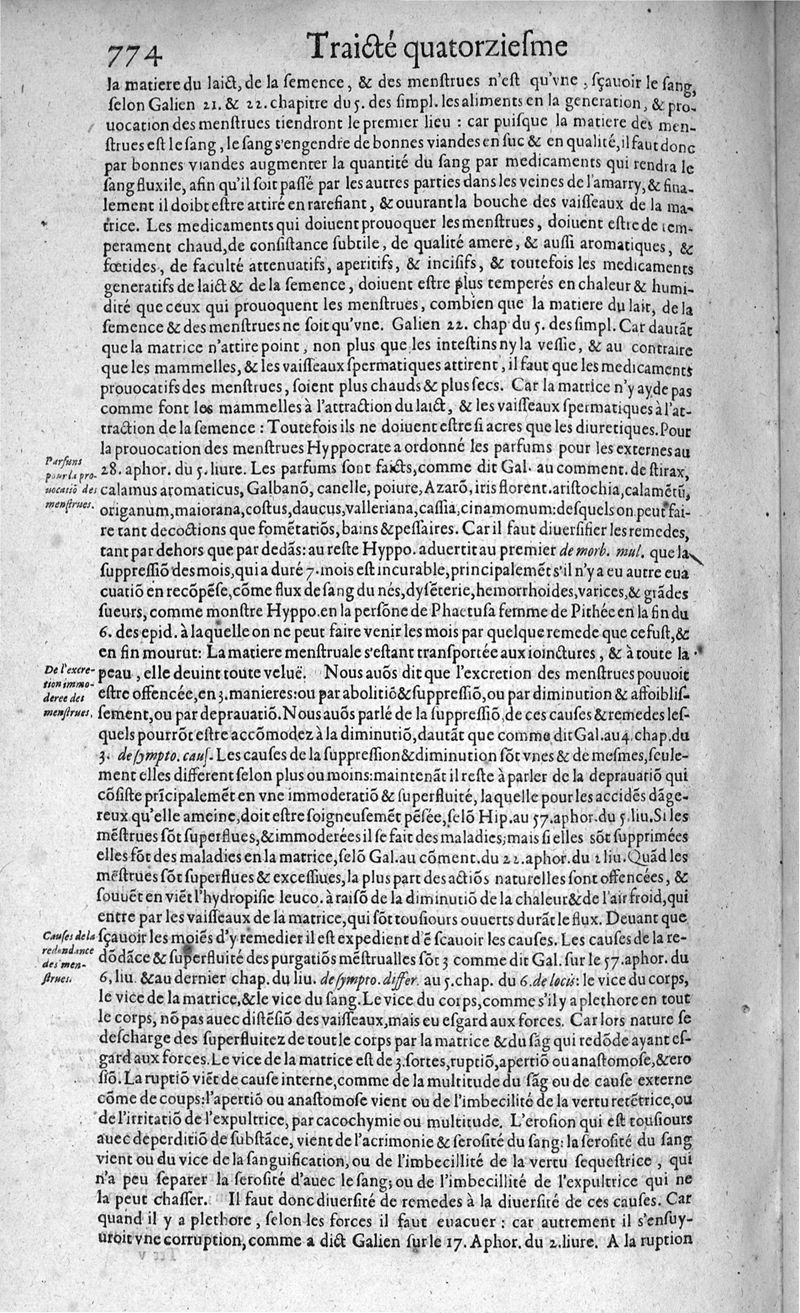 774 Traicté quatorziesme
la matiere du laict, de la semence, & des menstrues n'est qu'vne, sçauoir le sang,
selon Galien 21. & 22. chapitre du 5. des simpl. les aliments en la generation, & pro-
uocation des menstrues tiendront le premier lieu : car puisque la matiere des men-
strues est le sang, le sang s'engendre de bonnes viandes en suc & en qualité, il faut donc
par bonnes viandes augmenter la quantité du sang par medicaments qui rendra le
sang fluxile, afin qu'il soit passé par les autres parties dans les veines de l'amarry, & fina-
lement il doibt estre attiré en rarefiant, & ouurant la bouche des vaisseaux de la ma-
trice. Les medicaments qui doiuent prouoquer les menstrues, doiuent estre de tem-
perament chaud, de consistance subtile, de qualité amere, & aussi aromatiques, &
fœtides, de faculté attenuatifs, aperitifs, & incisifs, & toutefois les medicaments
generatifs de laict & de la semence, doiuent estre plus temperés en chaleur & humi-
dité que ceux qui prouoquent les menstrues, combien que la matiere du lait, de la
semence & des menstrues ne soit qu'vne. Galien 22. chap du 5. des simpl. Car dautãt
que la matrice n'attire point, non plus que les intestins ny la vessie, & au contraire
que les mammelles, & les vaisseaux spermatiques attirent, il faut que les medicaments
prouocatifs des menstrues, soient plus chauds & plus secs. Car la matrice n'y ayde pas
comme font les mammelles à l'attraction du laict, & les vaisseaux spermatiques à l'at-
traction de la semence : Toutefois ils ne doiuent estre si acres que les diuretiques. Pour
la prouocation des menstrues Hyppocrate a ordonné les parfums pour les externes au
Parfums
pour la pro-
uocatiõ des
menstrues.
28. aphor. du 5. liure. Les parfums sont faicts, comme dit Gal. au comment. de stirax,
calamus aromaticus, Galbanõ, canelle, poiure, Azarõ, iris florent. aristochia, calamẽtũ,
origanum, maiorana, costus, daucus, valleriana, cassia, cinamomum: desquels on peut fai-
re tant decoctions que fomẽtatiõs, bains & pessaires. Car il faut diuersifier les remedes,
tant par dehors que par dedãs: au reste Hyppo. aduertit au premier de morb. mul. que la
suppressiõ des mois, qui a duré 7. mois est incurable, principalemẽt s'il n'y a eu autre eua
cuatiõ en recõpẽse, cõme flux de sang du nés, dysẽterie, hemorrhoides, varices, & grãdes
sueurs, comme monstre Hyppo. en la persõne de Phaetusa femme de Pithée en la fin du
6. des epid. à laquelle on ne peut faire venir les mois par quelque remede que ce fust, &
en fin mourut: La matiere menstruale s'estant transportée aux ioinctures, & à toute la
De l'excre-
tion immo-
deree des
menstrues.
peau, elle deuint toute veluë. Nous auõs dit que l'excretion des menstrues pouuoit
estre offencée, en 3. manieres: ou par abolitiõ & suppressiõ, ou par diminution & affoiblis-
sement, ou par deprauatiõ. Nous auõs parlé de la suppressiõ, de ces causes & remedes les-
quels pourrõt estre accõmodez à la diminutiõ, dautãt que comme dit Gal. au 4. chap. du
3. de sympto. caus. Les causes de la suppression & diminution sõt vnes & de mesmes, seule-
ment elles different selon plus ou moins: maintenãt il reste à parler de la deprauatiõ qui
cõsiste prĩcipalemẽt en vne immoderatiõ & superfluité, laquelle pour les accidẽs dãge-
reux qu'elle ameine, doit estre soigneusemẽt pẽsée, selõ Hip. au 57. aphor. du 5. liu. Si les
mẽstrues sõt superflues, & immoderées il se fait des maladies, mais si elles sõt supprimées
elles fõt des maladies en la matrice, selõ Gal. au cõment. du 22. aphor. du 2 liu. Quãd les
mẽstrues sõt superflues & excessiues, la plus part des actiõs naturelles sont offencées, &
souuẽt en viẽt l'hydropisie leuco. à raisõ de la diminutiõ de la chaleur & de l'air froid, qui
entre par les vaisseaux de la matrice, qui sõt tousiours ouuerts durãt le flux. Deuant que
Causes de la
redondance
des men-
strues.
sçauoir les moiẽs d'y remedier il est expedient d'ẽ scauoir les causes. Les causes de la re-
dõdãce & superfluité des purgatiõs mẽstrualles sõt 3 comme dit Gal. sur le 57. aphor. du
6, liu. & au dernier chap. du liu. de sympto. differ. au 5. chap. du 6. de locis: le vice du corps,
le vice de la matrice, & le vice du sang. Le vice du corps, comme s'il y a plethore en tout
le corps, nõ pas auec distẽsiõ des vaisseaux, mais eu esgard aux forces. Car lors nature se
descharge des superfluitez de tout le corps par la matrice & du sãg qui redõde ayant es-
gard aux forces. Le vice de la matrice est de 3. sortes, ruptiõ, apertiõ ou anastomose, & ero
siõ. La ruptiõ viẽt de cause interne, comme de la multitude du sãg ou de cause externe
cõme de coups: l'apertiõ ou anastomose vient ou de l'imbecilité de la vertu retẽtrice, ou
de l'irritatiõ de l'expultrice, par cacochymie ou multitude. L'erosion qui est tousiours
auec deperditiõ de substãce, vient de l'acrimonie & serosité du sang: la serosité du sang
vient ou du vice de la sanguification, ou de l'imbecillité de la vertu sequestrice, qui
n'a peu separer la serosité d'auec le sang; ou de l'imbecilité de l'expultrice qui ne
la peut chasser. Il faut donc diuersité de remedes à la diuersité de ces causes. Car
quand il y a plethore, selon les forces il faut euacuer : car autrement il s'ensuy-
uroit vne corruption, comme a dict Galien sur le 17. Aphor. du 2. liure. A la ruption